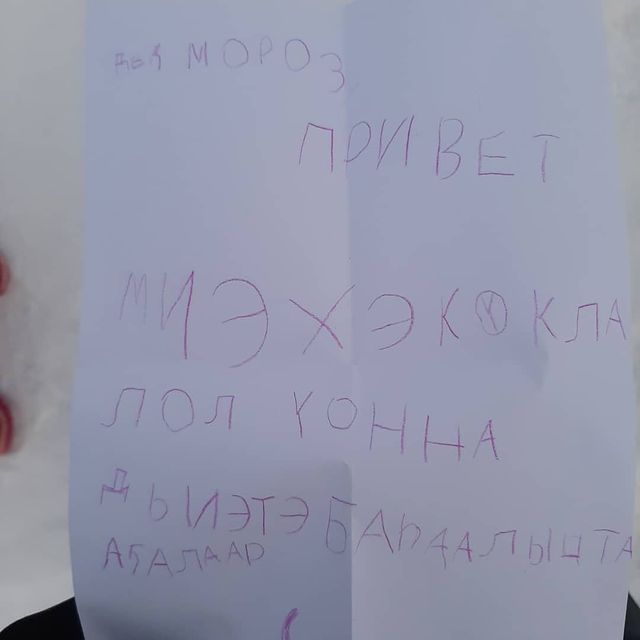 ДЕД МОРОЗ
ПРИВЕТ
МИЭХЭ КУКЛА
ЛОЛ УОННА
ДЬИЭТЭ БАҺААЛЫЦТА
АҔАЛААР